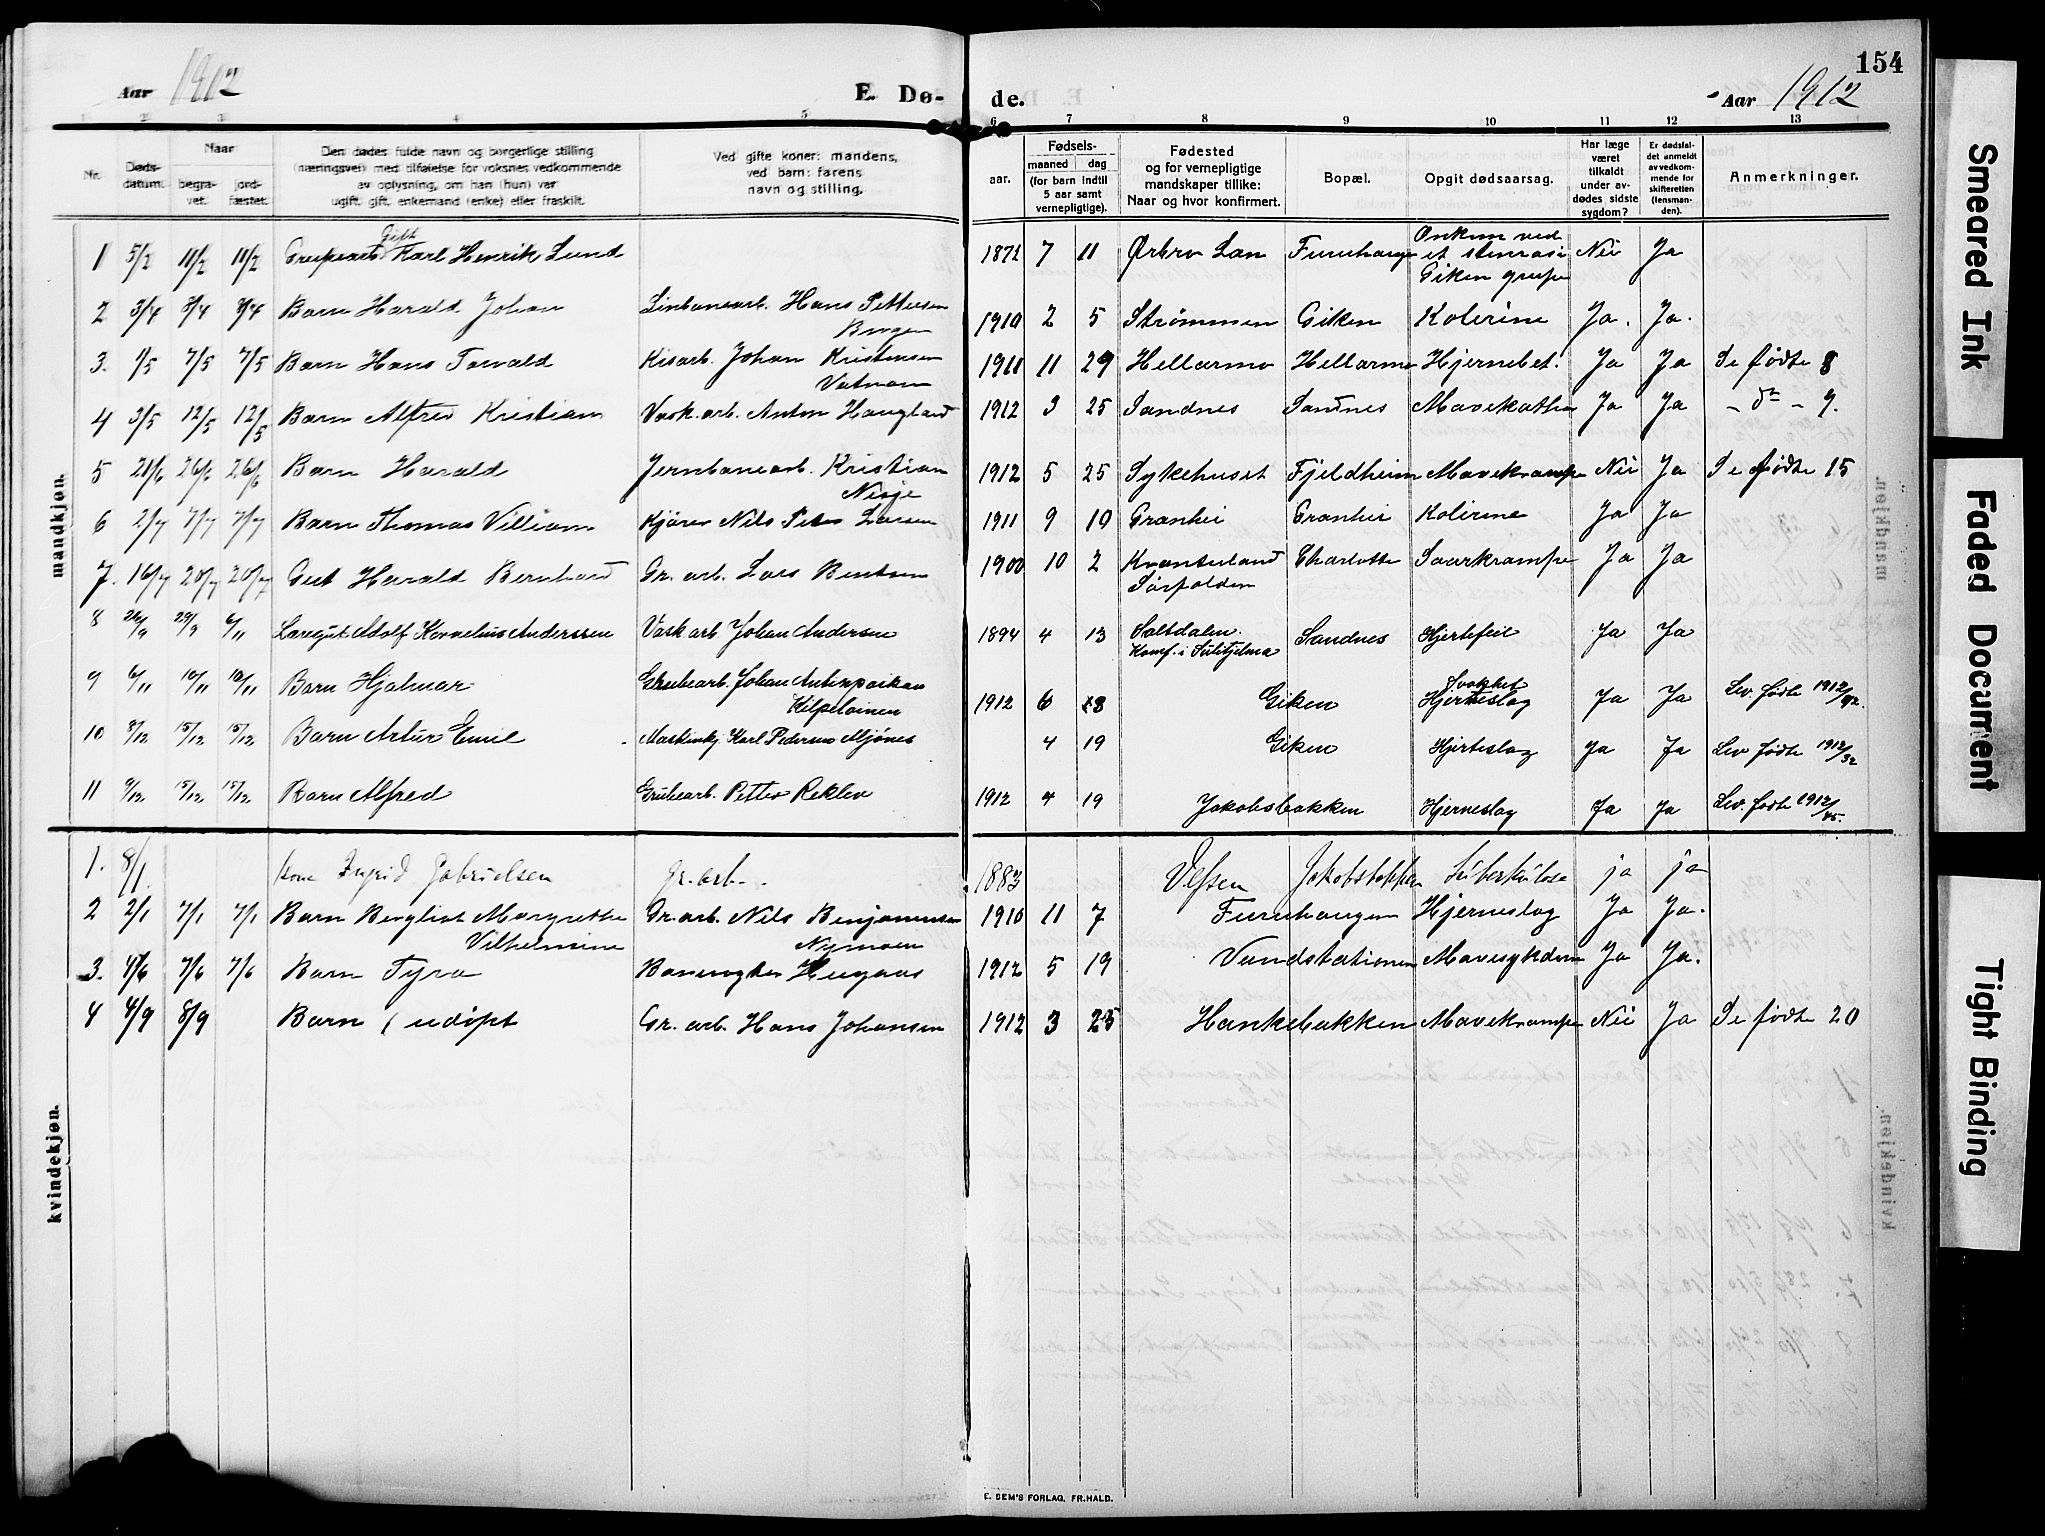 154
Aar 1912 E. Dø- de. Aar 1912
1 2 3 4 5 6 7 8 9 10 11 12 13
Nr. Døds-datum. Naar begra-vet. jord-fæstet. Den dødes fulde navn og borgerlige stilling (næringsvei) med tilføielse for voksnes vedkommende av oplysning, om han (hun) var ugift, gift, enkemand (enke) eller fraskilt. Ved gifte koner: mandens, ved barn: farens navn og stilling. Fødsels- aar. maaned dag (for barn indtil 5 aar samt vernepligtige). Fødested og for vernepligtige mandskaper tillike: Naar og hvor konfirmert. Bopæl. Opgit dødsaarsag. Har læge været tilkaldt under av-dødes sidste sygdom? Er dødsfal-det anmeldt av vedkom-mende for skifteretten (lensman-den). Anmerkninger.
mandkjøn.
1 5/2 11/2 11/2 Grupearb Gift Karl Henrik Lund 1872 7 11 Ørbro Lan Furuhaugen Omkom ved et stenras i Giken grupe Nei Ja
2 3/4 8/4 8/4 Barn Harald Johan Linbanearb. Hans Pettersen Bogen 1910 2 5 Strømmen Giken Kolerine Ja. Ja.
3. 1/5 7/5 7/5 Barn Hans Torvald Kisarb. Johan Kristensen Vatnam 1911 11 29 Hellarmo Hellarmo Hjernebet. Ja Ja Se fødte 8
4 3/5 12/5 12/5 Barn Alfred Kristian Vask. arb. Anton Haugland 1912 3 25 Sandnes Sandnes Mavekatha Ja Ja - do - 9.
5 21/6 26/6 26/6 Barn Harald Jernbanearb. Kristian Nesje 1912 5 25 Sykehuset Fjeldheim Mavekrampe Nei Ja Se fødte 15
6 2/7 7/7 7/7 Barn Thomas Villiam Kjører Nils Peter Larsen 1911 9 10 Granhei Granhei Kolerine Ja Ja
7. 16/7 20/7 20/7 Gut Harald Bernhard Gr. arb. Lars Bentsen 1900 10 2 Kvanterland Sørfolden Charlotte Saarkrampe Ja Ja
8 26/9 29/9 6/11 Læregut Adolf Kornelius Anderssen Vask arb Johan Andersen 1894 4 13 Saltdalen. Konf. i Sulitjelma Sandnes Hjertefeil Ja Ja
9 6/11 10/11 10/11 Barn Hjalmar Grubearb. Johan Kilpelainen 1912 6 18 Giken Hjerneslag Ja Ja Lev. fødte 1912/42.
10 8/12 15/12 15/12 Barn Artur Emil Maskinkj Karl Pedersen Mjønes 4 19 Giken Hjerteslag Ja Ja Lev fødte 1912/32
11 9/12 15/12 15/12 Barn Alfred Grubearb. Petter Reklev 1912 4 19 Jakobsbakken Hjerneslag Ja Ja Lev. fødte 1912/45.
kvindekjøn.
1. 8/1. Kone Ingrid Gabrielsen Gr. arb. 1883 Vefsen Jakobstoppen Tuberkulose ja ja
2 2/1 7/1 7/1 Barn Bergliot Margrethe Vilhelmine Gr. arb. Nils Benjaminsen Nymoen 1910 11 7 Furuhaugen Hjerneslag Ja Ja.
3. 4/6 7/6 7/6 Barn Tyra Banevogter Haugaas 1912 5 19 Vandstationen Mavesykdom Ja Ja.
4 4/9 8/9 Barn (udøpt Gr. arb. Hans Johansen 1912 3 25 Hankebakken Mavekrampe Nei Ja Se fødte 20
E. SEM'S FORLAG, FR.HALD.
mandkjøn.
kvindekjøn.
Smeared Ink
Faded Document
Tight Binding